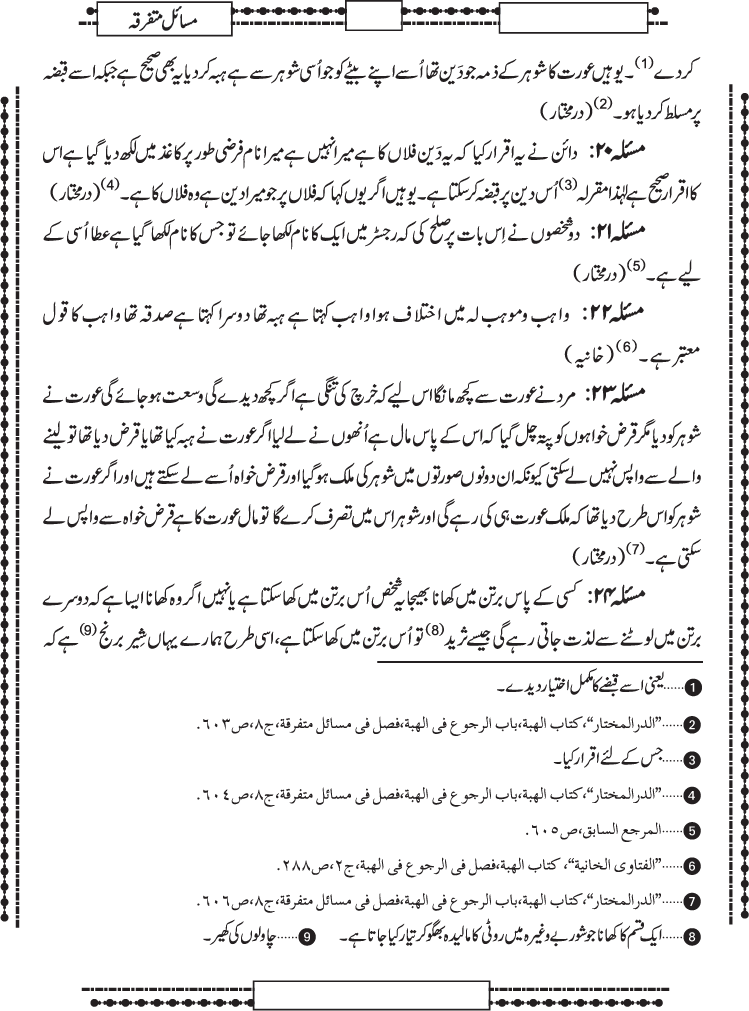 مسائل متفرقہ
کردے(1)۔ یوہیں عورت کا شوہر کے ذمہ جو دَین تھا اُسے اپنے بیٹے کو جو اُسی شوہر سے ہے ہبہ کردیا یہ بھی صحیح ہے جبکہ اسے قبضہ
پر مسلط کردیا ہو۔(2) (درمختار)
مسئلہ۲۰: دائن نے یہ اقرار کیا کہ یہ دَین فلاں کا ہے میرا نہیں ہے میرا نام فرضی طور پر کاغذ میں لکھ دیا گیا ہے اس
کا اقرار صحیح ہے لہٰذا مقرلہ(3) اُس دین پر قبضہ کرسکتا ہے۔ یوہیں اگر یوں کہا کہ فلاں پر جو میرا دین ہے وہ فلاں کا ہے۔(4) (درمختار)
مسئلہ۲۱: دو شخصوں نے اِس بات پر صلح کی کہ رجسٹر میں ایک کا نام لکھا جائے تو جس کا نام لکھا گیا ہے عطا اُسی کے
لیے ہے۔(5) (درمختار)
مسئلہ۲۲: واہب وموہب لہ میں اختلاف ہوا واہب کہتا ہے ہبہ تھا دوسرا کہتا ہے صدقہ تھا واہب کا قول
معتبر ہے۔(6) (خانیہ)
مسئلہ۲۳: مرد نے عورت سے کچھ مانگا اس لیے کہ خرچ کی تنگی ہے اگر کچھ دیدے گی وسعت ہوجائے گی عورت نے
شوہر کو دیا مگر قرض خواہوں کو پتہ چل گیا کہ اس کے پاس مال ہے اُنھوں نے لے لیا اگر عورت نے ہبہ کیا تھا یا قرض دیا تھا تو لینے
والے سے واپس نہیں لے سکتی کیونکہ ان دونوں صورتوں میں شوہر کی ملک ہوگیا اور قرض خواہ اُسے لے سکتے ہیں اور اگر عورت نے
شوہر کو اس طرح دیا تھا کہ ملک عورت ہی کی رہے گی اور شوہر اس میں تصرف کرے گا تو مال عورت کا ہے قرض خواہ سے واپس لے
سکتی ہے۔(7) (درمختار)
مسئلہ۲۴: کسی کے پاس برتن میں کھانا بھیجا یہ شخص اُس برتن میں کھا سکتا ہے یا نہیں اگر وہ کھانا ایسا ہے کہ دوسرے
برتن میں لوٹنے سے لذت جاتی رہے گی جیسے ثرید(8) تو اُس برتن میں کھا سکتا ہے، اسی طرح ہمارے یہاں شِیر برنج(9) ہے کہ
1......یعنی اسے قبضے کا مکمل اختیار دیدے۔
2......”الدرالمختار“،کتاب الهبة،باب الرجوع فی الهبة،فصل فی مسائل متفرقة،ج۸،ص۶۰۳.
3......جس کے لئے اقرار کیا۔
4......”الدرالمختار“،کتاب الهبة،باب الرجوع فی الهبة،فصل فی مسائل متفرقة،ج۸،ص۶۰٤.
5......المرجع السابق،ص۶۰۵.
6......”الفتاوی الخانیة“، کتاب الهبة،فصل فی الرجوع فی الهبة،ج۲،ص۲۸۸.
7......”الدرالمختار“،کتاب الهبة،باب الرجوع فی الهبة،فصل فی مسائل متفرقة،ج۸،ص۶۰۶.
8......ایک قسم کا کھانا جو شوربے وغیرہ میں روٹی کا مالیدہ بھگو کر تیار کیا جاتا ہے۔ 9......چاولوں کی کھیر۔